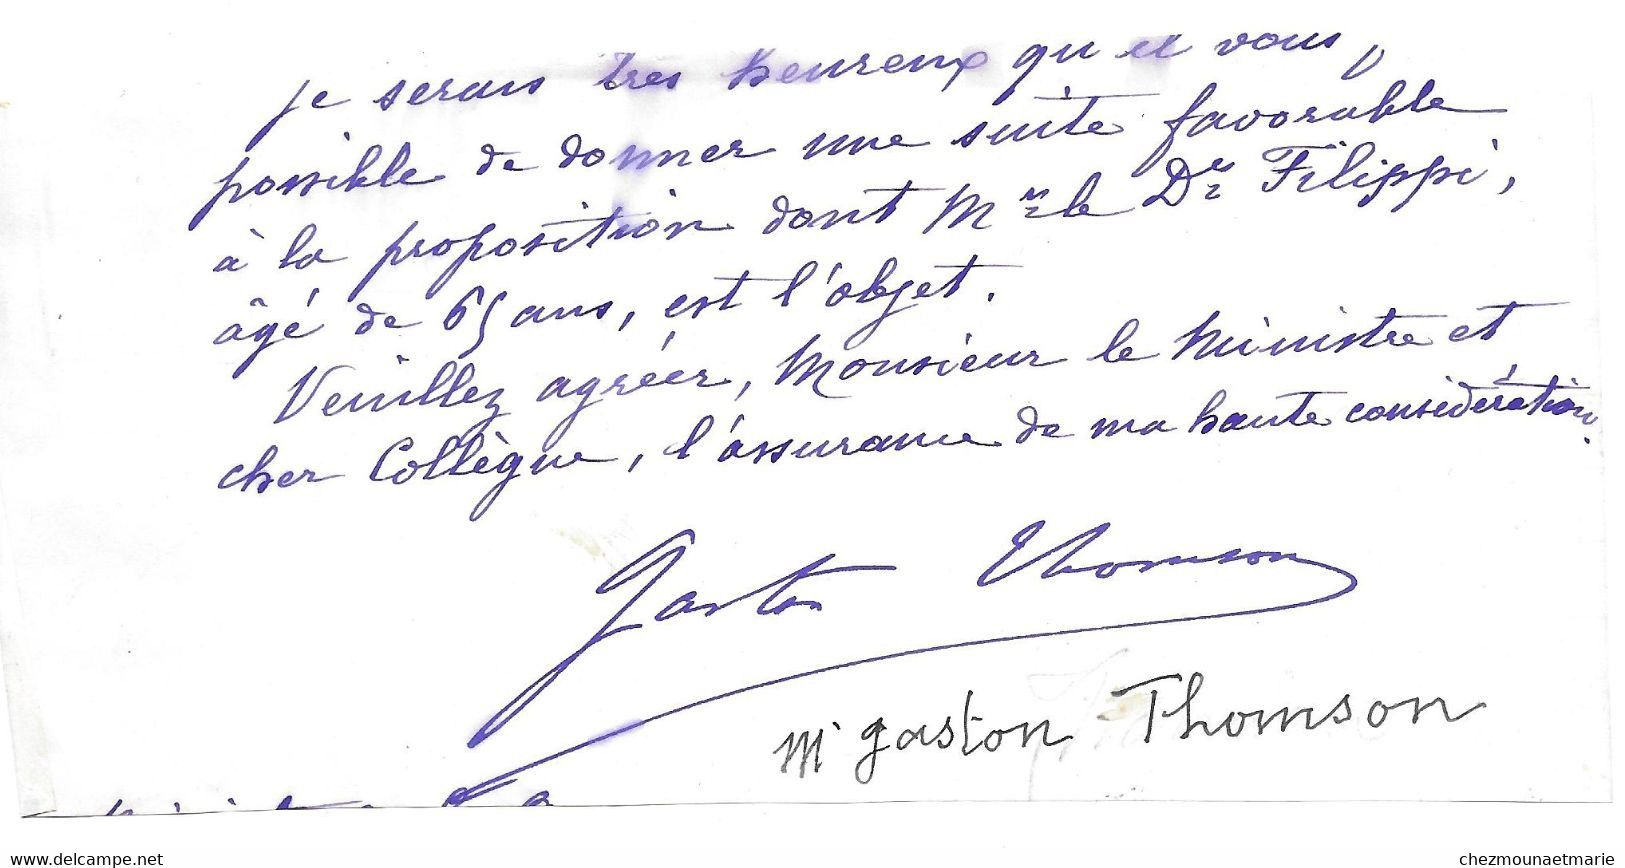 je serais très heureux qu'il vous
possible de donner une suite favorable
à la proposition dont Mr le Dr Filippi,
âgé de 65 ans, est l'objet.
Veuillez agréer, Monsieur le Ministre et
cher Collègue, l'assurance de ma haute considération.
Gaston Thomson
Mr Gaston Thomson
www.delcampe.net
chezmounaetmarie